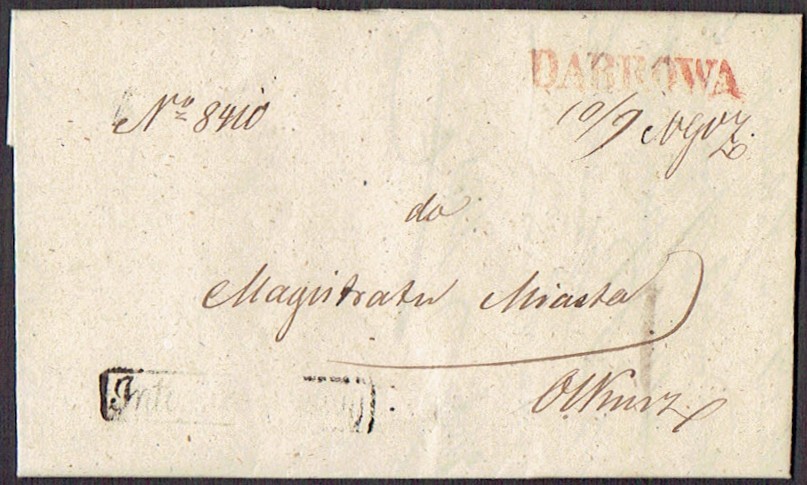 DABROWA
No 8410
10/9
do
Magistratu Miasta
Olkusz